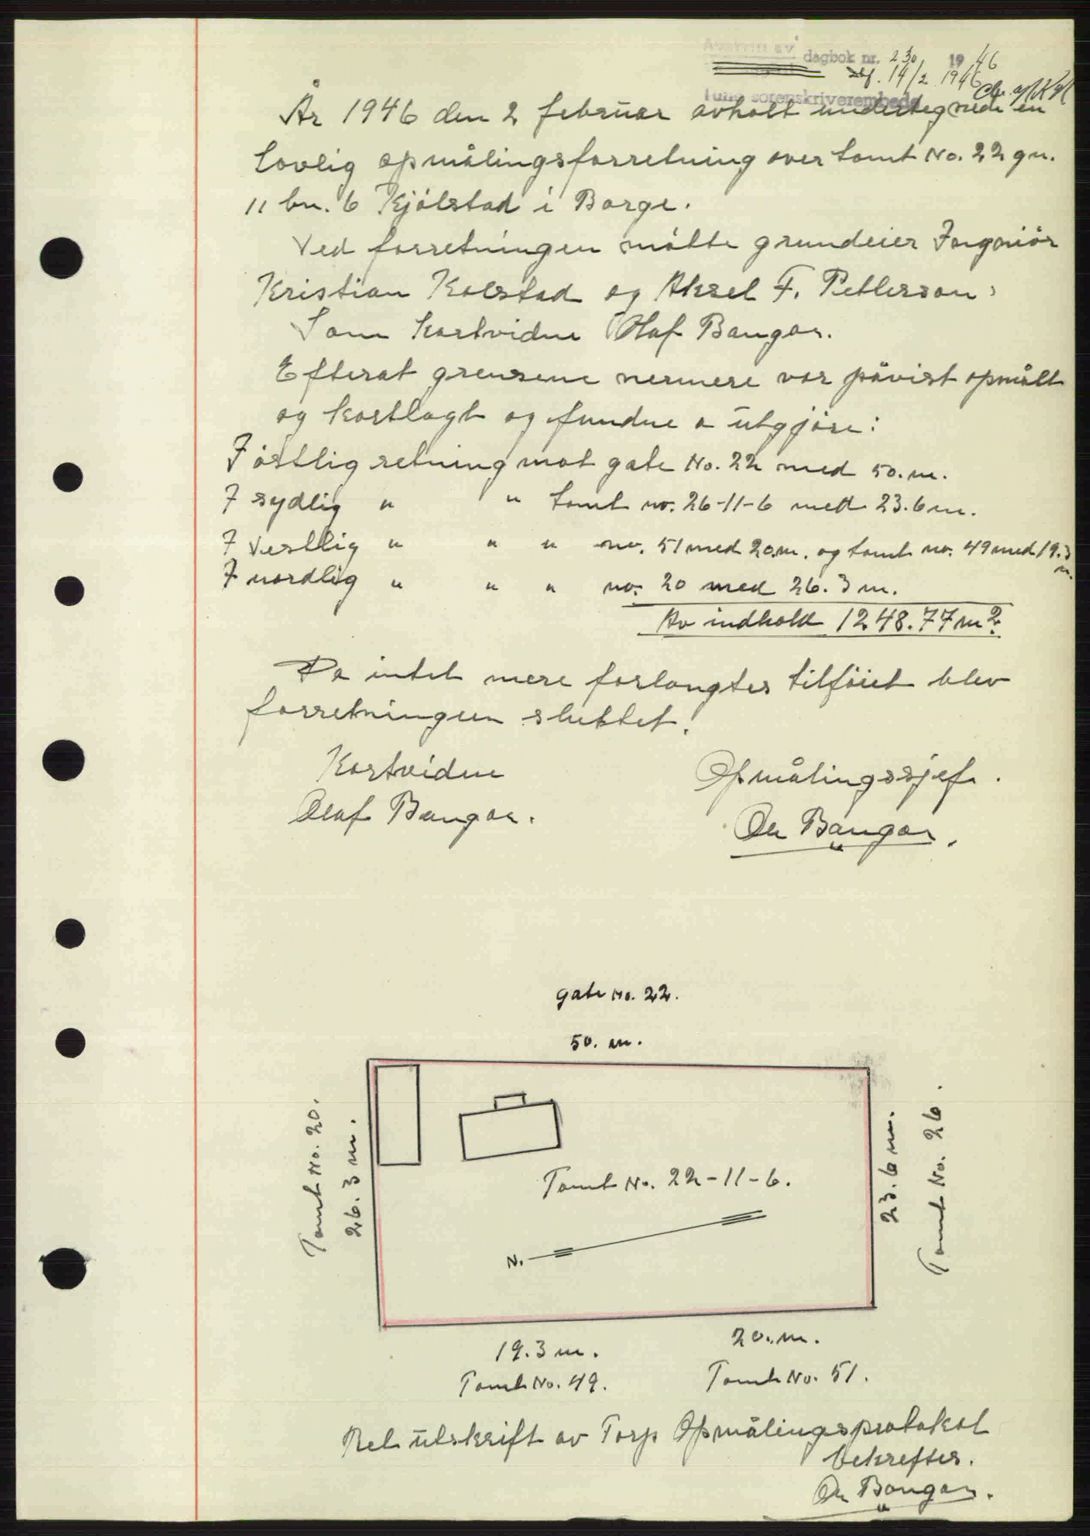 Avskrift av dagbok nr. 230 1946
14/2 1946
Tune sorenskriverembede
År 1946 den 2 februar avholt undertegnede en
lovlig opmålingsforretning over tomt No. 22 gn.
11 bn. 6 Kjølstad i Borge.
Ved forretningen møtte grundeier Ingeniør
Kristian Kolstad og Aksel F. Pettersson
Som kartvidne Olaf Bangor.
Efterat grensene nermere var påvist opmålt
og kartlagt og fundne a utgjøre:
I østlig retning mot gate No. 22 med 50. m.
I sydlig " " tomt no. 26-11-6 med 23.6 m.
I Vestlig " " " no. 51 med 20. m. og tomt no. 49 med 19.3 m.
I nordlig " " " no. 20 med 26.3 m.
Av indhold 1248.77 m2.
Da intet mere forlangtes tilføiet blev
forretningen sluttet.
Kartvidne Opmålingssjef.
Olaf Bangor. Bangor.
gate No. 22.
50. m.
Tomt No. 20.
26.3 m.
Tomt No. 22-11-6.
N.
23.6 m.
Tomt No. 26.
19.3 m. 20. m.
Tomt No. 49. Tomt No. 51.
Ret utskrift av Torp Opmålingsprotokol
bekreftes.
Bangor.